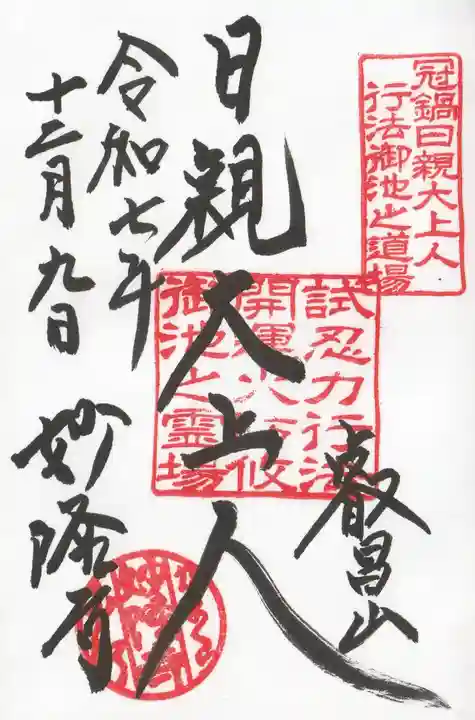 冠鍋日親大上人
行法御池之道場
叡昌山
日親大上人
試忍力行法
開運火防
御池之霊場
令和七年
十二月九日
妙隆寺